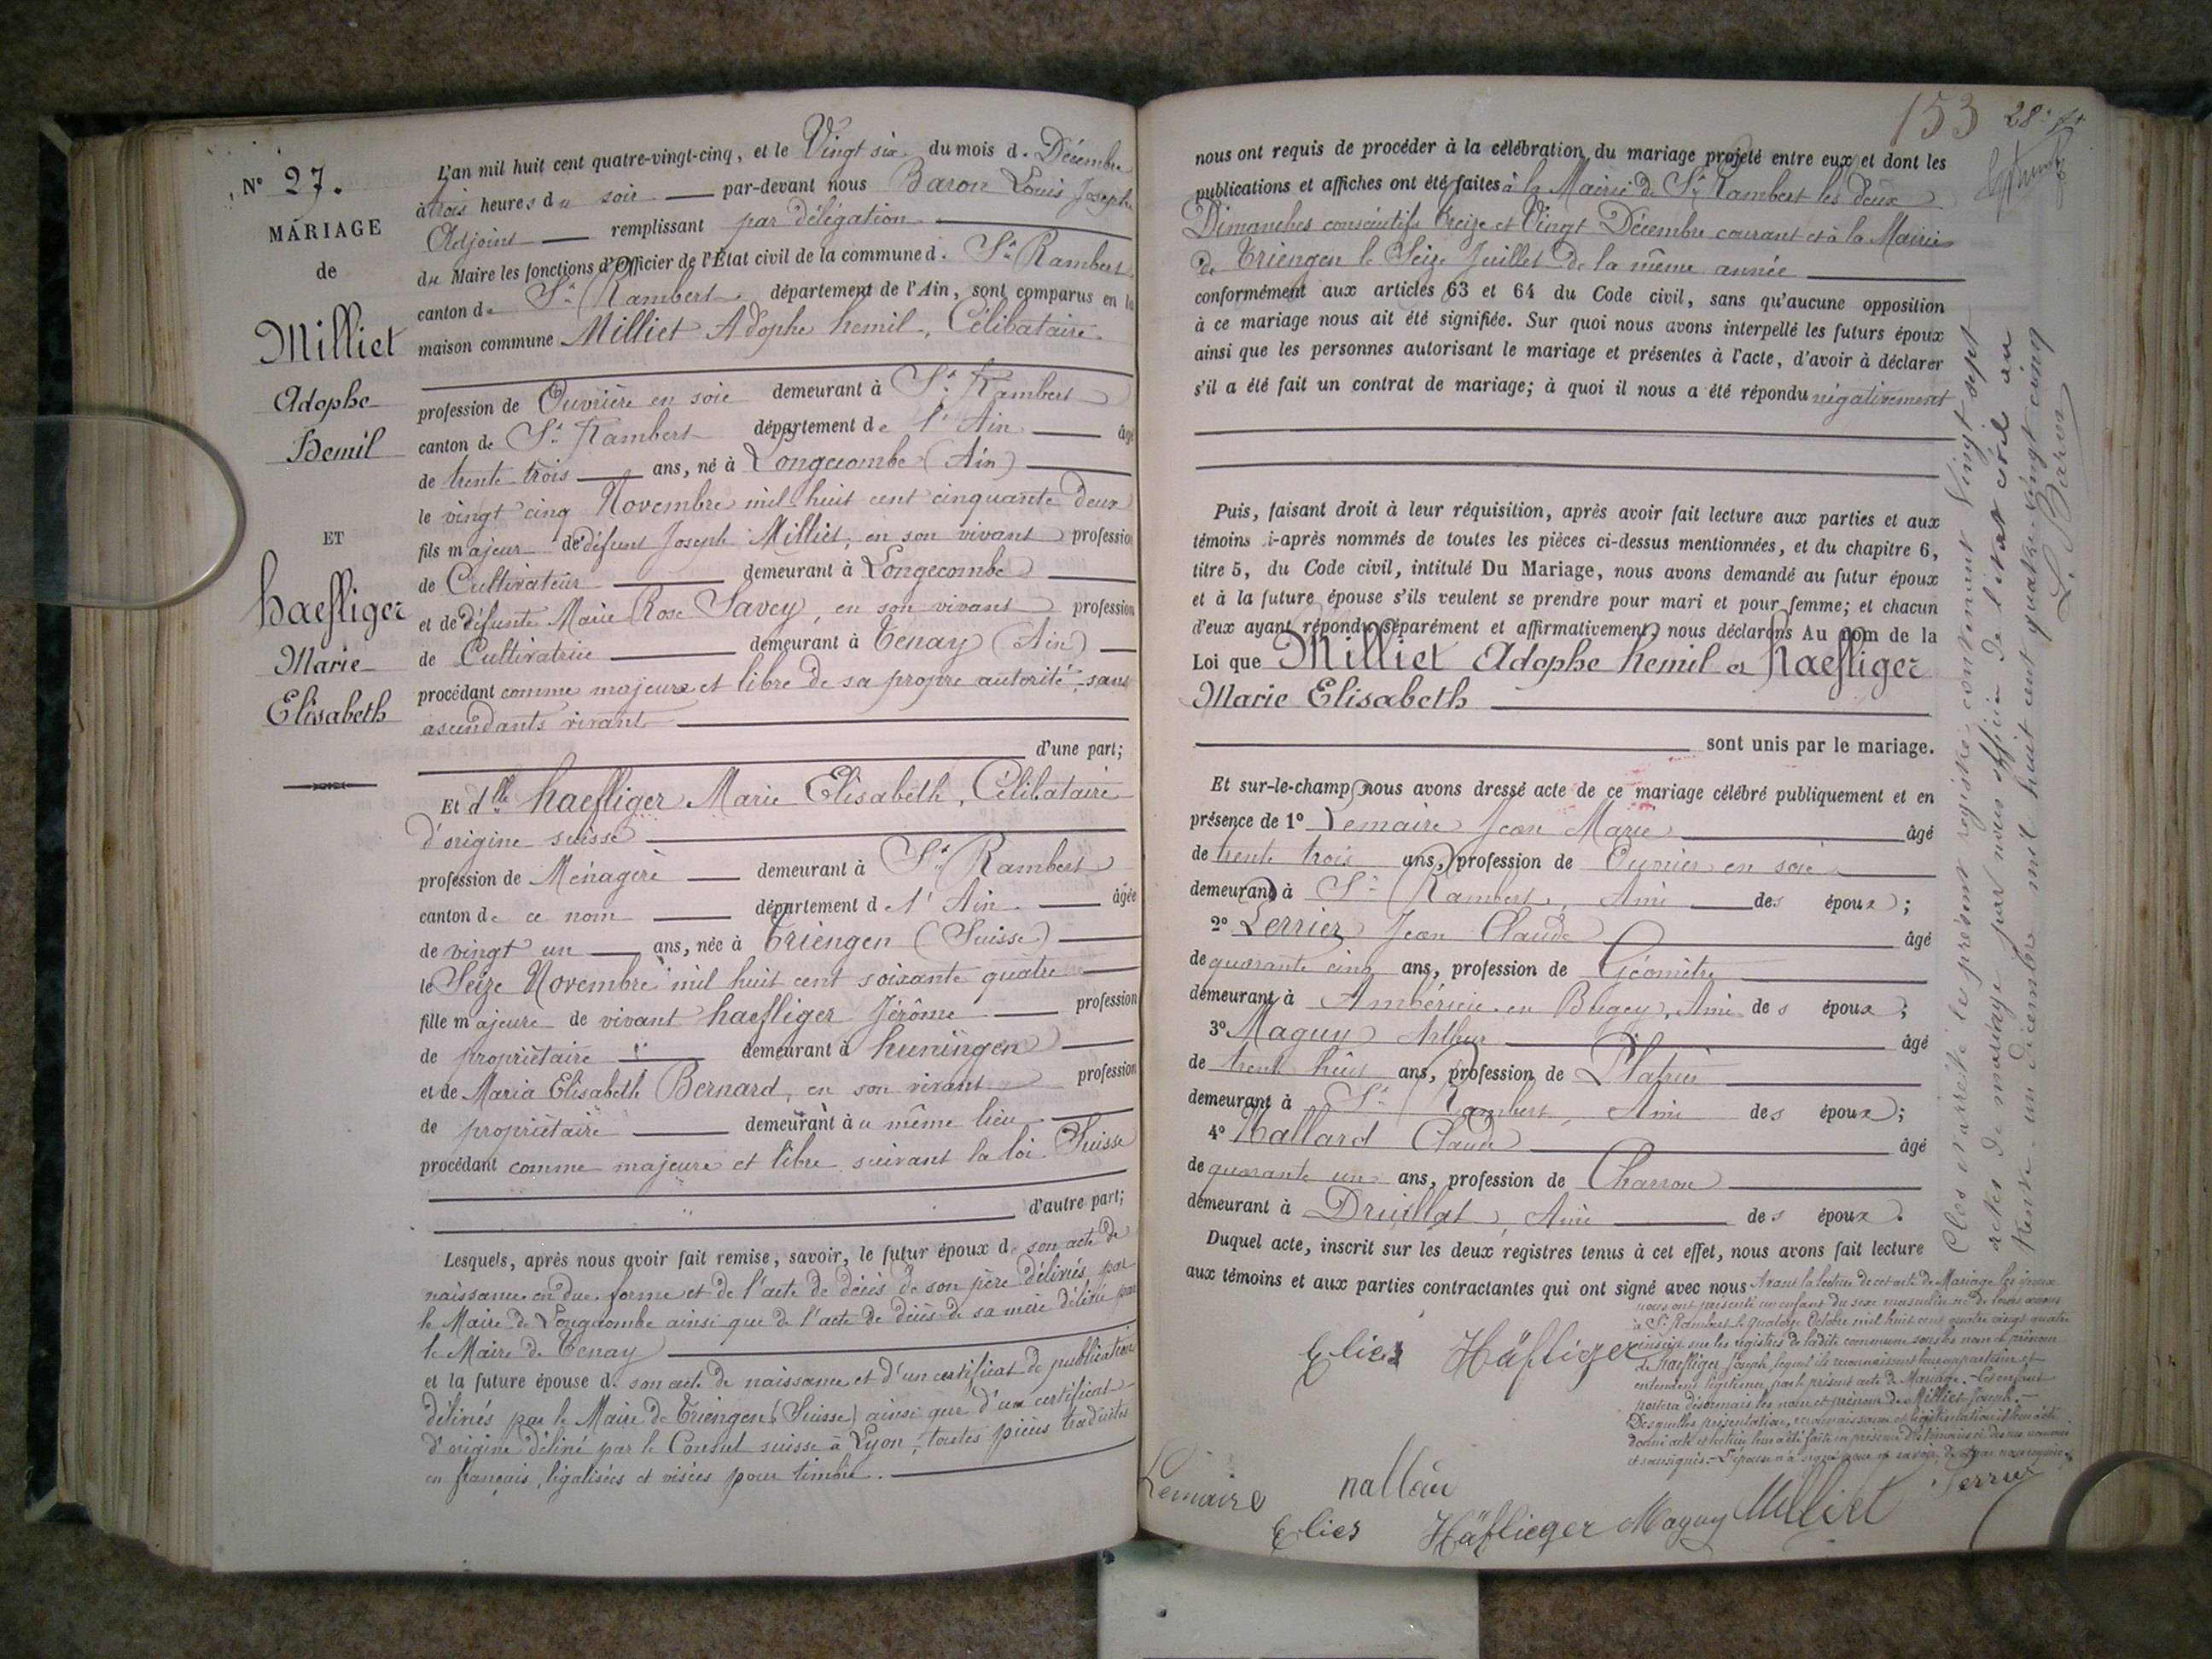 N° 27.
MARIAGE
de
Milliet
Adophe
Hemil
ET
haefliger
Marie
Elisabeth
L'an mil huit cent quatre-vingt-cinq, et le Vingt six du mois d. Décembre
à trois heures du soir par-devant nous Baron Louis Joseph
Adjoint remplissant par délégation
du Maire les fonctions d'Officier de l'État civil de la commune d. St Rambert
canton de St Rambert département de l'Ain, sont comparus en la
maison commune Milliet Adophe hemil, Célibataire
profession de Ouvrière en soie demeurant à St Rambert
canton de St Rambert département de l'Ain âgé
de trente trois ans, né à Longecombe (Ain)
le vingt cinq Novembre mil huit cent cinquante deux
fils majeur de défunt Joseph Milliet, en son vivant profession
de Cultivateur demeurant à Longecombe
et de défunte Marie Rose Savey, en son vivant profession
de Cultivatrice demeurant à Tenay (Ain)
procédant comme majeure et libre de sa propre autorité, sans
ascendants vivant
d'une part;
Et dlle haefliger Marie Elisabeth, Célibataire
d'origine suisse
profession de Ménagère demeurant à St Rambert
canton de ce nom département de l'Ain âgée
de vingt un ans, née à Triengen (Suisse)
le Seize Novembre mil huit cent soixante quatre
fille majeure de vivant haefliger Jérôme profession
de propriétaire demeurant à huningen
et de Maria Elisabeth Bernard, en son vivant profession
de propriétaire demeurant au même lieu
procédant comme majeure et libre suivant la loi Suisse
d'autre part;
Lesquels, après nous avoir fait remise, savoir, le futur époux de son acte de
naissance en due forme et de l'acte de décès de son père délivrés par
le Maire de Longecombe ainsi que de l'acte de décès de sa mère délivré par
le Maire de Tenay
et la future épouse de son acte de naissance et d'un certificat de publication
délivrés par le Maire de Triengen (Suisse) ainsi que d'un certificat
d'origine délivré par le Consul suisse à Lyon, toutes pièces traduites
en français, légalisées et visées pour timbre.
153 28e
nous ont requis de procéder à la célébration du mariage projeté entre eux et dont les
publications et affiches ont été faites à la Mairie de St Rambert les deux
Dimanches consécutifs treize et Vingt Décembre courant et à la Mairie
de Triengen le Seize Juillet de la même année
conformément aux articles 63 et 64 du Code civil, sans qu'aucune opposition
à ce mariage nous ait été signifiée. Sur quoi nous avons interpellé les futurs époux
ainsi que les personnes autorisant le mariage et présentes à l'acte, d'avoir à déclarer
s'il a été fait un contrat de mariage; à quoi il nous a été répondu négativement
Puis, faisant droit à leur réquisition, après avoir fait lecture aux parties et aux
témoins i-après nommés de toutes les pièces ci-dessus mentionnées, et du chapitre 6,
titre 5, du Code civil, intitulé Du Mariage, nous avons demandé au futur époux
et à la future épouse s'ils veulent se prendre pour mari et pour femme; et chacun
d'eux ayant répondu séparément et affirmativement, nous déclarons Au nom de la
Loi que Milliet Adophe hemil et haefliger
Marie Elisabeth
sont unis par le mariage.
Et sur-le-champ nous avons dressé acte de ce mariage célébré publiquement et en
présence de 1° Lemaire Jean Marie âgé
de trente trois ans, profession de Ouvrier en soie
demeurant à St Rambert, Ami des époux;
2° Terrier Jean Claude âgé
de quarante cinq ans, profession de Géomètre
demeurant à Ambérieu en Bugey, Ami des époux;
3° Maguy Arthur âgé
de trente huit ans, profession de Platrier
demeurant à St Rambert, Ami des époux;
4° Nallard Claude âgé
de quarante un ans, profession de Charron
demeurant à Druillat, Ami des époux.
Duquel acte, inscrit sur les deux registres tenus à cet effet, nous avons fait lecture
aux témoins et aux parties contractantes qui ont signé avec nous Avant la lecture de cet acte de Mariage les époux
nous ont présenté un enfant du sexe masculin né de leurs œuvres
à St Rambert le quatorze Octobre mil huit cent quatre vingt quatre
inscrit sur les registres de ladite commune sous les nom et prénom
de haefliger Joseph, lequel ils reconnaissent leur appartenir et
entendent légitimer par le présent acte de Mariage. Cet enfant
portera désormais les nom et prénom de Milliet Joseph.
Desquelles présentation, reconnaissance et légitimation
Elies Häfliger
Lemaire nallau Terrier
Elies Häflieger Maguy Milliet
Clos et arrêté le présent registre contenant Vingt sept
actes de mariage par nous officier de l'état civil ce
trente un décembre mil huit cent quatre-vingt cinq
L. Baron